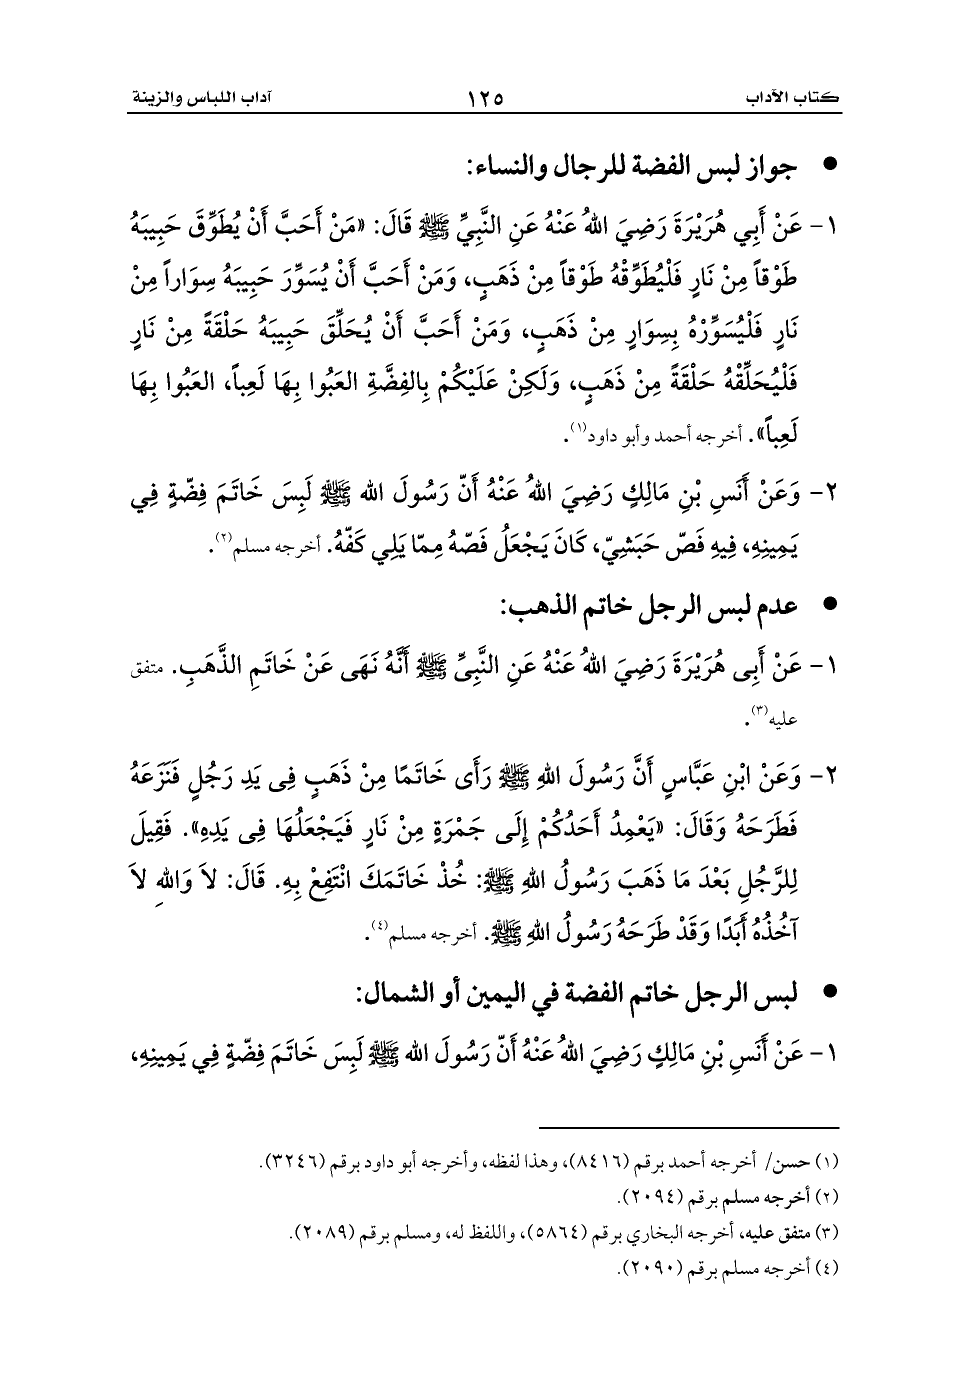 كتاب الآداب ١٢٥ آداب اللباس والزينة
● جواز لبس الفضة للرجال والنساء:
١- عَنْ أَبِي هُرَيْرَةَ رَضِيَ اللهُ عَنْهُ عَنِ النَّبِيِّ ﷺ قَالَ: «مَنْ أَحَبَّ أَنْ يُطَوِّقَ حَبِيبَهُ
طَوْقاً مِنْ نَارٍ فَلْيُطَوِّقْهُ طَوْقاً مِنْ ذَهَبٍ، وَمَنْ أَحَبَّ أَنْ يُسَوِّرَ حَبِيبَهُ سِوَاراً مِنْ
نَارٍ فَلْيُسَوِّرْهُ بِسِوَارٍ مِنْ ذَهَبٍ، وَمَنْ أَحَبَّ أَنْ يُحَلِّقَ حَبِيبَهُ حَلْقَةً مِنْ نَارٍ
فَلْيُحَلِّقْهُ حَلْقَةً مِنْ ذَهَبٍ، وَلَكِنْ عَلَيْكُمْ بِالفِضَّةِ العَبُوا بِهَا لَعِباً، العَبُوا بِهَا
لَعِباً». أخرجه أحمد وأبو داود(١).
٢- وَعَنْ أَنَسِ بْنِ مَالِكٍ رَضِيَ اللهُ عَنْهُ أَنّ رَسُولَ الله ﷺ لَبِسَ خَاتَمَ فِضّةٍ فِي
يَمِينِهِ، فِيهِ فَصّ حَبَشِيّ، كَانَ يَجْعَلُ فَصّهُ مِمّا يَلِي كَفّهُ. أخرجه مسلم(٢).
● عدم لبس الرجل خاتم الذهب:
١- عَنْ أَبِى هُرَيْرَةَ رَضِيَ اللهُ عَنْهُ عَنِ النَّبِىِّ ﷺ أَنَّهُ نَهَى عَنْ خَاتَمِ الذَّهَبِ. متفق
عليه(٣).
٢- وَعَنْ ابْنِ عَبَّاسٍ أَنَّ رَسُولَ اللهِ ﷺ رَأَى خَاتَمًا مِنْ ذَهَبٍ فِى يَدِ رَجُلٍ فَنَزَعَهُ
فَطَرَحَهُ وَقَالَ: «يَعْمِدُ أَحَدُكُمْ إِلَى جَمْرَةٍ مِنْ نَارٍ فَيَجْعَلُهَا فِى يَدِهِ». فَقِيلَ
لِلرَّجُلِ بَعْدَ مَا ذَهَبَ رَسُولُ اللهِ ﷺ: خُذْ خَاتَمَكَ انْتَفِعْ بِهِ. قَالَ: لاَ وَاللهِ لاَ
آخُذُهُ أَبَدًا وَقَدْ طَرَحَهُ رَسُولُ اللهِ ﷺ. أخرجه مسلم(٤).
● لبس الرجل خاتم الفضة في اليمين أو الشمال:
١- عَنْ أَنَسِ بْنِ مَالِكٍ رَضِيَ اللهُ عَنْهُ أَنّ رَسُولَ الله ﷺ لَبِسَ خَاتَمَ فِضّةٍ فِي يَمِينِهِ،
(١) حسن/ أخرجه أحمد برقم (٨٤١٦)، وهذا لفظه، وأخرجه أبو داود برقم (٣٢٤٦).
(٢) أخرجه مسلم برقم (٢٠٩٤).
(٣) متفق عليه، أخرجه البخاري برقم (٥٨٦٤)، واللفظ له، ومسلم برقم (٢٠٨٩).
(٤) أخرجه مسلم برقم (٢٠٩٠).